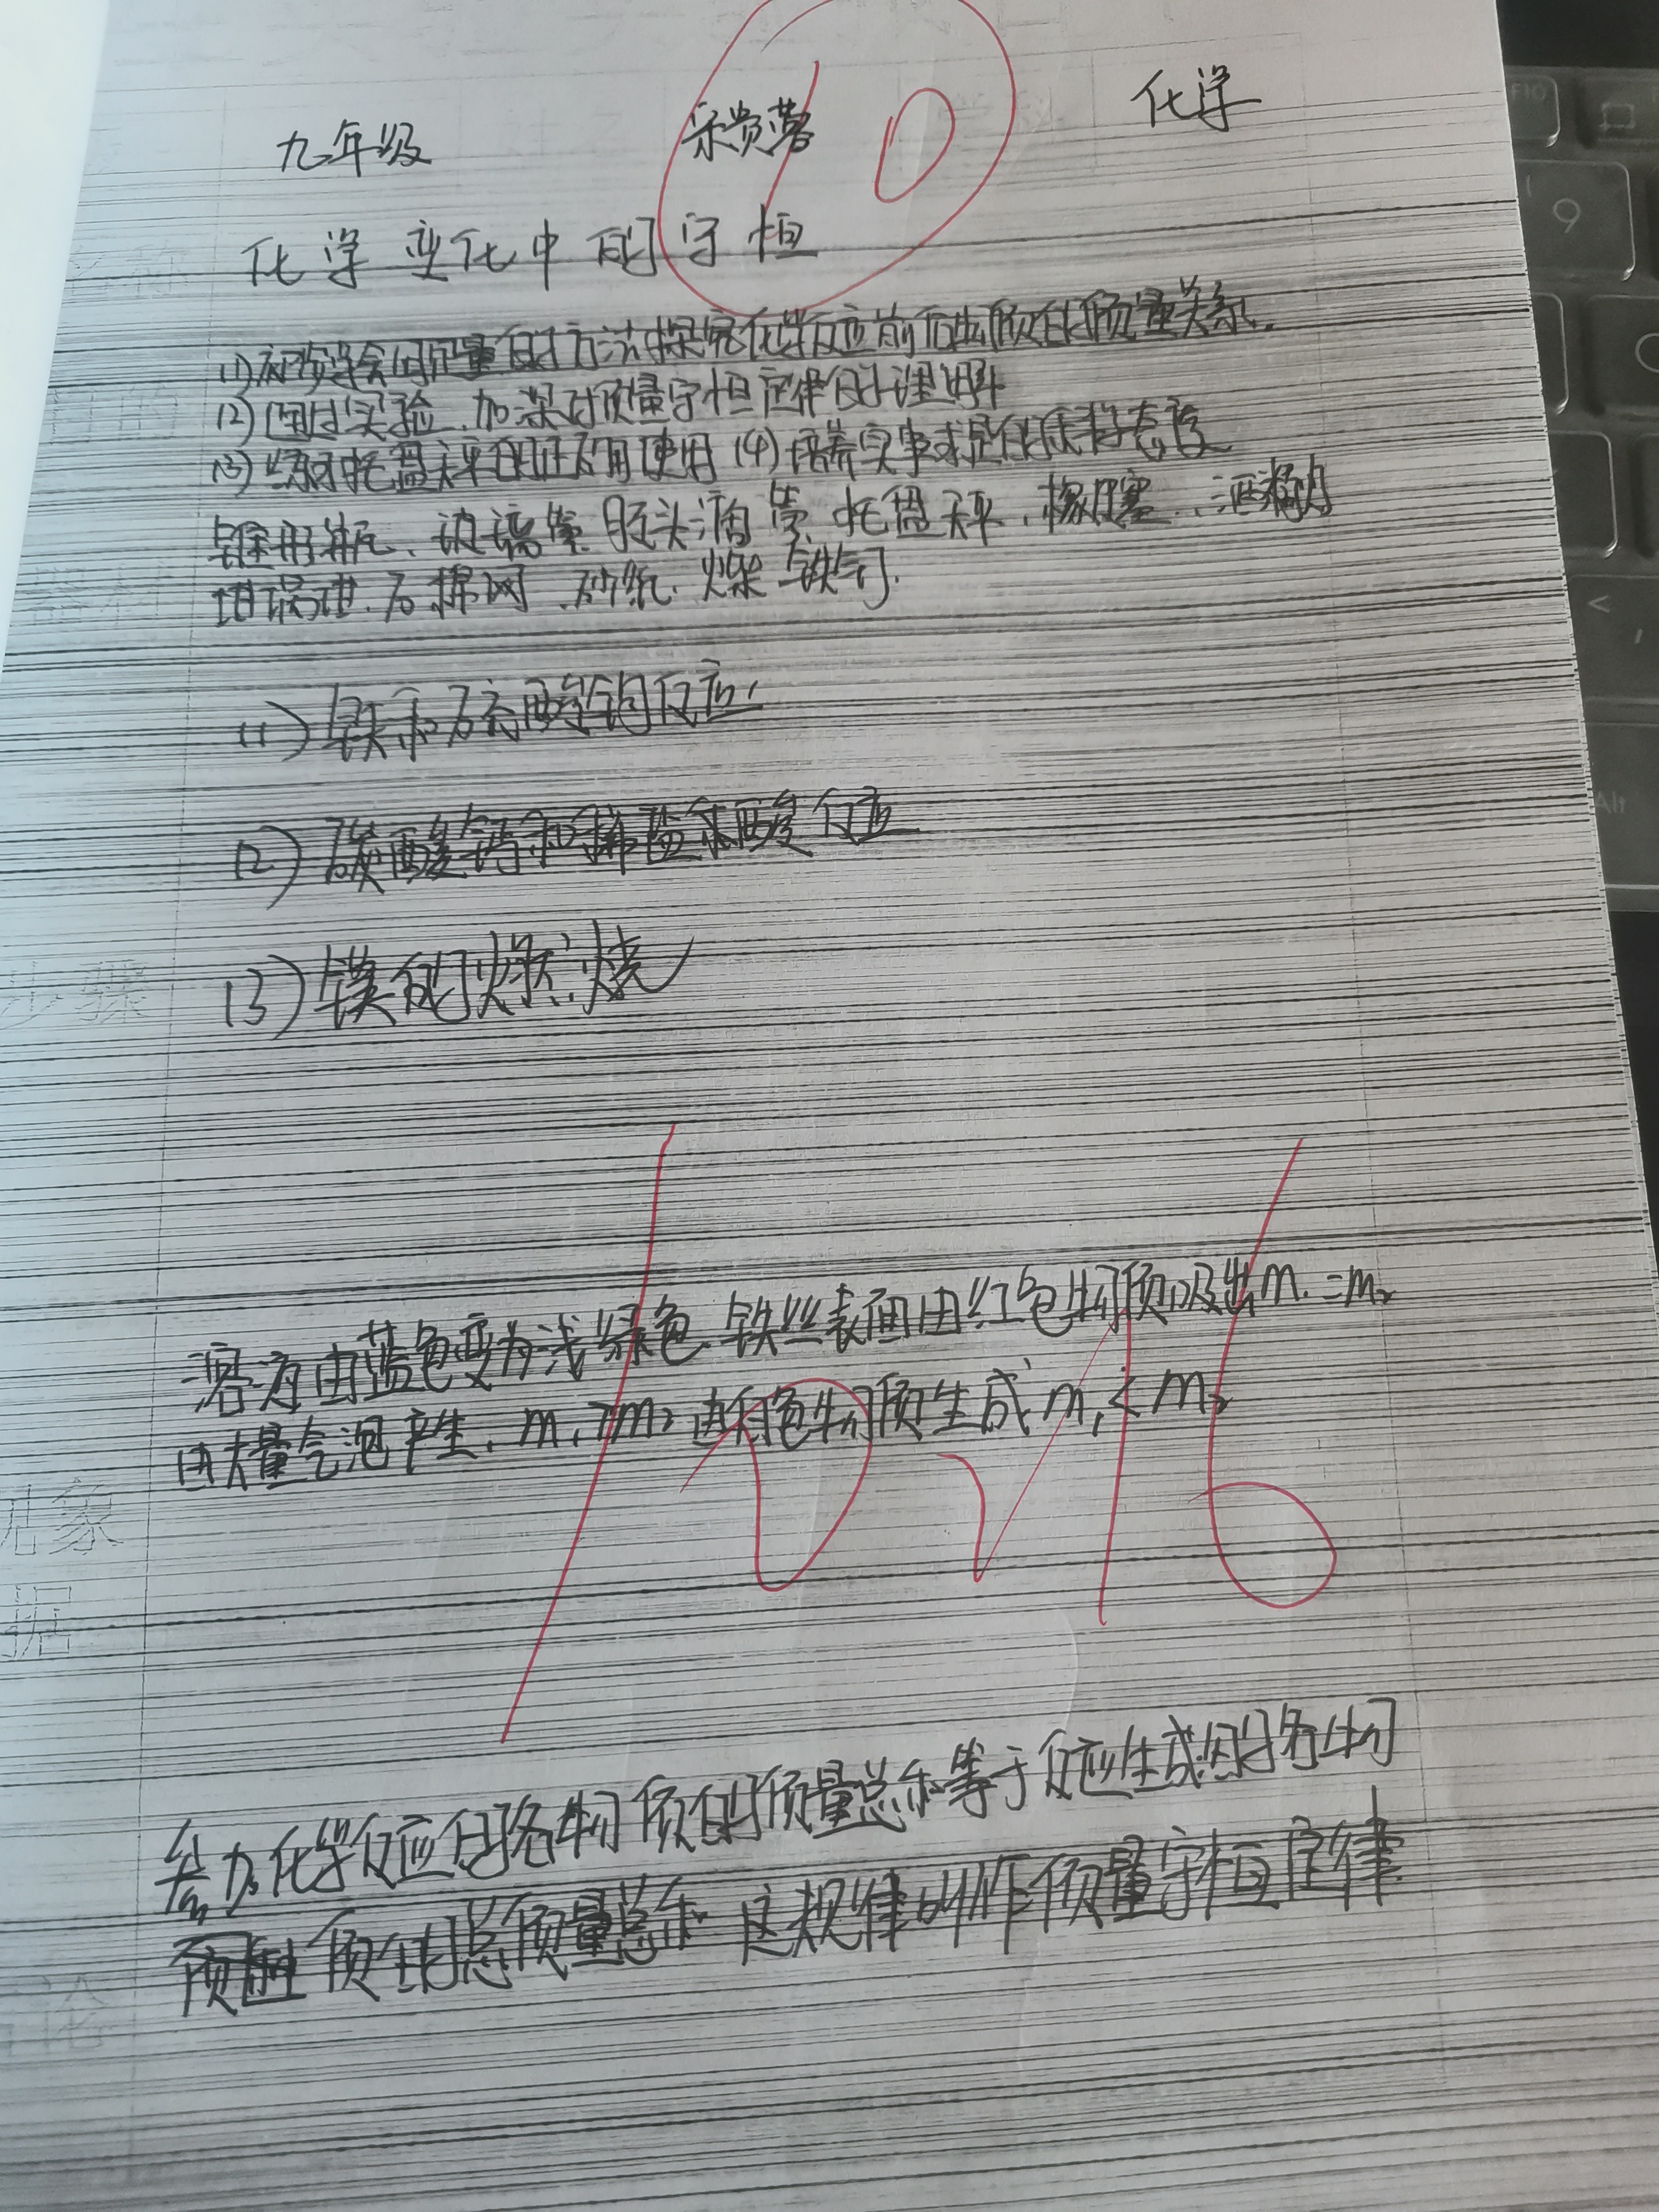 九年级 宋贵蓉 化学
10
化学变化中的守恒
(1)初步学会用定量的方法探究化学反应前后物质的质量关系.
(2)通过实验、加深对质量守恒定律的理解
(3)练习托盘天平的正确使用 (4)培养实事求是的科学态度
锥形瓶、玻璃管 胶头滴管、托盘天平、橡胶塞、酒精灯
坩埚钳、石棉网、砂纸、 铁钉.
(1)铁和硫酸铜反应,
(2)碳酸钙和稀盐酸反应
步骤
(3)镁的燃烧
溶液由蓝色变为浅绿色、铁丝表面由红色物质吸出m₁=m₂
由大量气泡产生、m₁>m₂ 由白色物质生成 m₁<m₂
现象
据
参加化学反应的各物质的质量总和等于反应生成的各物
质的总质量总和 这规律叫作质量守恒定律